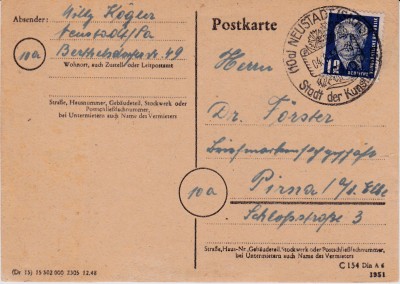 Absender: Willy Kögler
Neustadt/Sa
10a Berthelsdorferstr. 49
Wohnort, auch Zustell- oder Leitpostamt
Straße, Hausnummer, Gebäudeteil, Stockwerk oder
Postschließfachnummer,
bei Untermietern auch Name des Vermieters
(Dr 15) 15 502 000 2505 12.48
Postkarte
(10a) NEUSTADT (SACHS)
Stadt der Kunst
12
Herrn
Dr. Förster
Briefmarkenfachgeschäft
10a
Pirna / a. d. Elbe
Schloßstraße 3
Straße, Haus-Nr., Gebäudeteil, Stockwerk oder Postschließfachnummer,
bei Untermietern auch Name des Vermieters
C 154 Din A 6
1951